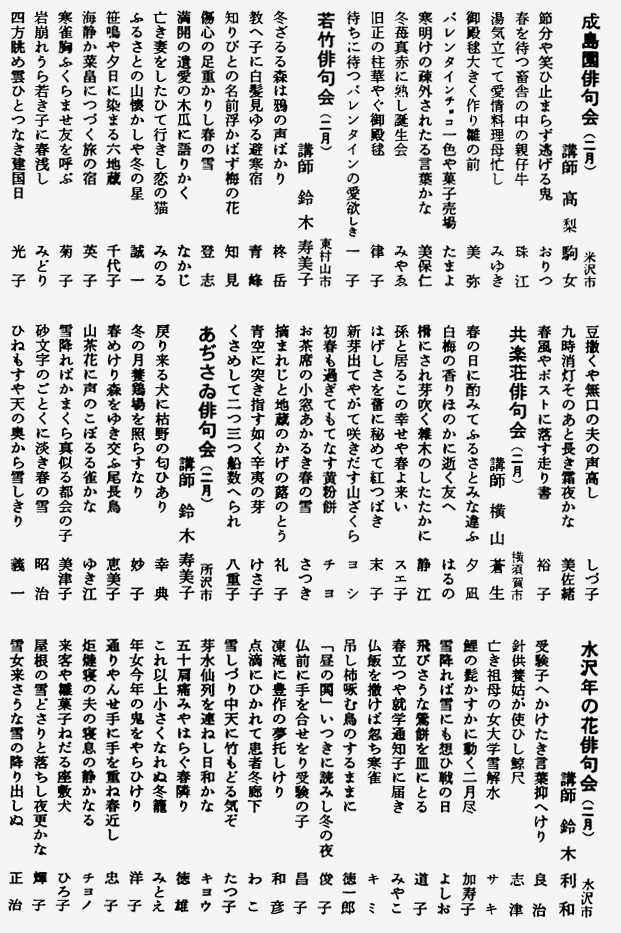 成島園俳句会（二月）
米沢市
講師 高梨駒女
節分や笑ひ止まらず逃げる鬼 おりつ
春を待つ畜舎の中の親仔牛 珠江
湯気立てて愛情料理母忙し みゆき
御殿毬大きく作り雛の前 美弥
バレンタインチョコ一色や菓子売場 たまよ
寒明けの疎外されたる言葉かな 美保仁
冬苺真赤に熟し誕生会 みやゑ
旧正の柱華やぐ御殿毬 律子
待ちに待つバレンタインの愛欲しき 一子
若竹俳句会（二月）
東村山市
講師 鈴木寿美子
冬ざるる森は鴉の声ばかり 柊岳
教へ子に白髪見ゆる避寒宿 青峰
知りびとの名前浮かばず梅の花 知見
傷心の足重かりし春の雪 登志
満開の遺愛の木瓜に語りかく なかじ
亡き妻をしたひて行きし恋の猫 みのる
ふるさとの山懐かしや冬の星 誠一
笹鳴や夕日に染まる六地蔵 千代子
海静か菜畠につづく旅の宿 英子
寒雀胸ふくらませ友を呼ぶ 菊子
岩崩れうら若き子に春浅し みどり
四方眺め雲ひとつなき建国日 光子
豆撒くや無口の夫の声高し しづ子
九時消灯そのあと長き霜夜かな 美佐緒
春風やポストに落す走り書 裕子
共楽荘俳句会（二月）
横須賀市
講師 横山蒼生
春の日に酌みてふるさとみな違ふ 夕凪
白梅の香りほのかに逝く友へ はるの
榾にされ芽吹く雑木のしたたかに 静江
孫と居るこの幸せや春よ来い スエ子
はげしさを蕾に秘めて紅つばき 末子
新芽出てやがて咲きだす山ざくら ヨシ
初春も過ぎてもてなす黄粉餅 チヨ
お茶席の小窓あかるき春の雪 さつき
摘まれじと地蔵のかげの蕗のとう 礼子
青空に突き指す如く辛夷の芽 けさ子
くさめして二つ三つ船数へられ 八重子
あぢさゐ俳句会（二月）
所沢市
講師 鈴木寿美子
戻り来る犬に枯野の匂ひあり 幸典
冬の月養鶏場を照らすなり 妙子
春めけり森をゆき交ふ尾長鳥 恵美子
山茶花に声のこぼるる雀かな ゆき江
雪降ればかまくら真似る都会の子 美津子
砂文字のごとくに淡き春の雪 昭治
ひねもすや天の奥から雪しきり 義一
水沢年の花俳句会（二月）
水沢市
講師 鈴木利和
受験子へかけたき言葉抑へけり 良治
針供養姑が使ひし鯨尺 志津
亡き祖母の女大学雪解水 サキ
鯉の髭かすかに動く二月尽 加寿子
雪降れば雪にも想ひ戦の日 よしお
飛びさうな鶯餅を皿にとる 道子
春立つや就学通知子に届き みやこ
仏飯を撒けば忽ち寒雀 キミ
吊し柿啄む鳥のするままに 徳一郎
「昼の閑」いつきに読みし冬の夜 俊子
仏前に手を合せをり受験の子 昌子
凍滝に豊作の夢托しけり 和彦
点滴にひかれて患者冬廊下 わこ
雪しづり中天に竹もどる気ぞ たつ子
芽水仙列を連ねし日和かな キヨウ
五十肩痛みやはらぐ春隣り 徳雄
これ以上小さくなれぬ冬籠 みとえ
年女今年の鬼をやらひけり 洋子
通りやんせ手に手を重ね春近し 忠子
炬燵寝の夫の寝息の静かなる チヨノ
来客や雛菓子ねだる座敷犬 ひろ子
屋根の雪どさりと落ちし夜更かな 輝子
雪女来さうな雪の降り出しぬ 正治